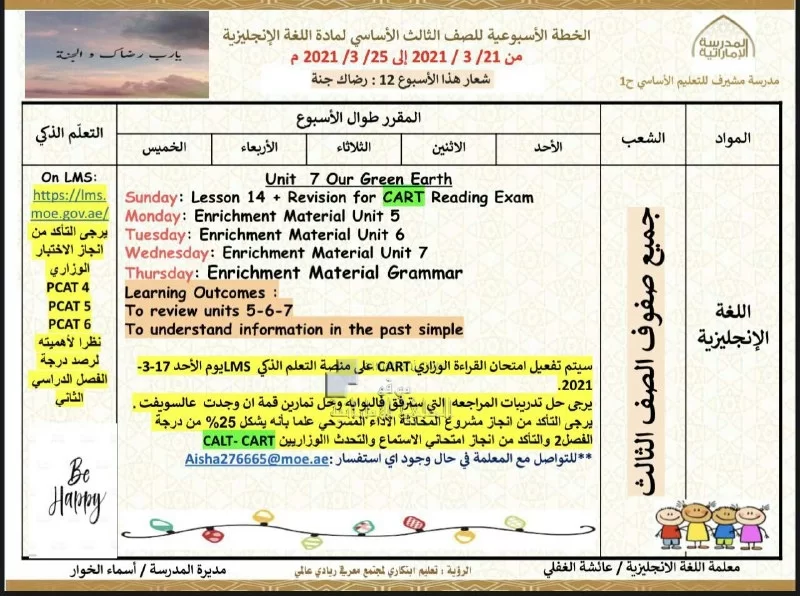 الخطة الأسبوعية للصف الثالث الأساسي لمادة اللغة الإنجليزية
من 21/ 3 / 2021 إلى 25/ 3/ 2021 م
شعار هذا الأسبوع 12 : رضاك جنة
يارب رضاك و الجنة
المدرسة
الإماراتية
مدرسة مشيرف للتعليم الأساسي ح1
المواد
الشعب
المقرر طوال الأسبوع
التعلّم الذكي
الأحد
الاثنين
الثلاثاء
الأربعاء
الخميس
اللغة
الإنجليزية
جميع صفوف الصف الثالث
Unit 7 Our Green Earth
Sunday: Lesson 14 + Revision for CART Reading Exam
Monday: Enrichment Material Unit 5
Tuesday: Enrichment Material Unit 6
Wednesday: Enrichment Material Unit 7
Thursday: Enrichment Material Grammar
Learning Outcomes :
To review units 5-6-7
To understand information in the past simple
سيتم تفعيل امتحان القراءة الوزاري CART على منصة التعلم الذكي LMSيوم الأحد 17-3-
2021.
يرجى حل تدريبات المراجعه التي سترفق فالبوابه وحل تمارين قمة ان وجدت عالسويفت .
يرجى التأكد من انجاز مشروع المحادثة الأداء المسرحي علما بأنه يشكل 25% من درجة
الفصل2 والتأكد من انجاز امتحاني الاستماع والتحدث االوزاريين CALT- CART
**للتواصل مع المعلمة في حال وجود اي استفسار :Aisha276665@moe.ae
On LMS:
https://lms.
moe.gov.ae/
يرجى التأكد من
انجاز الاختبار
الوزاري
PCAT 4
PCAT 5
PCAT 6
نظرا لأهميته
لرصد درجة
الفصل الدراسي
الثاني
Be
Happy
معلمة اللغة الانجليزية / عائشة الغفلي
الرؤية : تعليم ابتكاري لمجتمع معرفي ريادي عالمي
مديرة المدرسة / أسماء الخوار